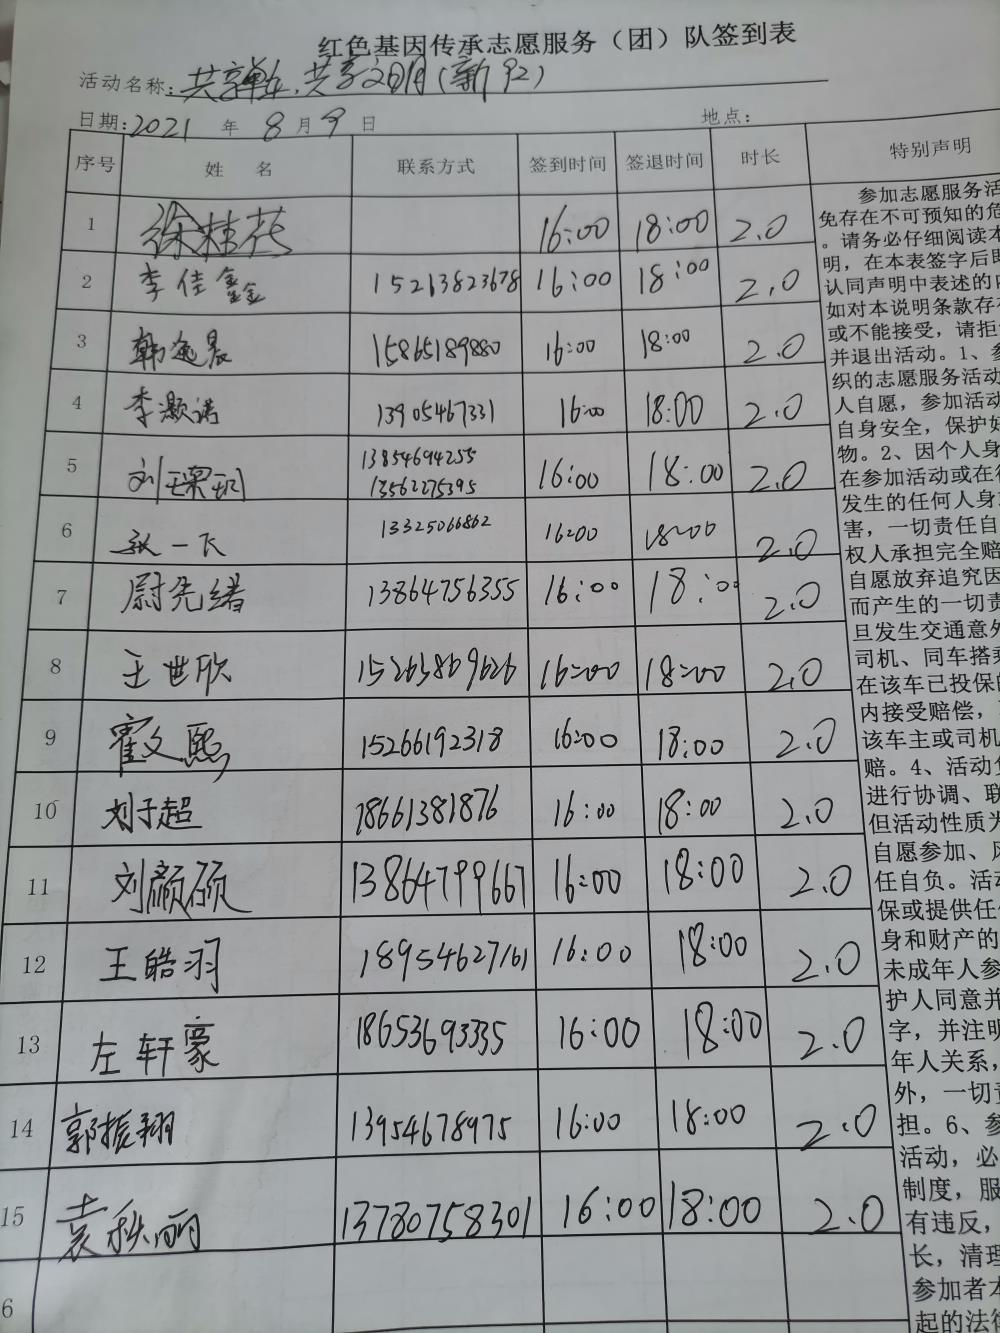 红色基因传承志愿服务（团）队签到表
活动名称：共享单车，共享文明（新区）
日期：2021 年 8 月 9 日 地点：
序号 姓 名 联系方式 签到时间 签退时间 时长 特别声明
1 徐桂花 16:00 18:00 2.0
2 李佳鑫 15213823678 16:00 18:00 2.0
3 韩逸晨 15865189880 16:00 18:00 2.0
4 李灏诺 13905467331 16:00 18:00 2.0
5 刘 13854694255 16:00 18:00 2.0
13562275395
6 张一飞 13325066862 16:00 18:00 2.0
7 尉先绪 13864756355 16:00 18:00 2.0
8 王世欣 15263869626 16:00 18:00 2.0
9 霍文熙 15266192318 16:00 18:00 2.0
10 刘子超 18661381876 16:00 18:00 2.0
11 刘颜硕 13864799667 16:00 18:00 2.0
12 王皓羽 18954627161 16:00 18:00 2.0
13 左轩豪 18653693335 16:00 18:00 2.0
14 郭振翔 13954678975 16:00 18:00 2.0
15 袁秩丽 13780758301 16:00 18:00 2.0
6
参加志愿服务活
免存在不可预知的危
。请务必仔细阅读本
明，在本表签字后即
认同声明中表述的内
如对本说明条款存在
或不能接受，请拒
并退出活动。1、参
织的志愿服务活动
人自愿，参加活动
自身安全，保护好
物。2、因个人身
在参加活动或在往
发生的任何人身
害，一切责任自
权人承担完全赔
自愿放弃追究因
而产生的一切责
旦发生交通意外
司机、同车搭乘
在该车已投保的
内接受赔偿，
该车主或司机
赔。4、活动负
进行协调、联
但活动性质为
自愿参加、风
任自负。活动
保或提供任何
身和财产的
未成年人参
护人同意并
字，并注明
年人关系，
外，一切责
担。6、参
活动，必
制度，服
有违反，
长，清理
参加者本
起的法律